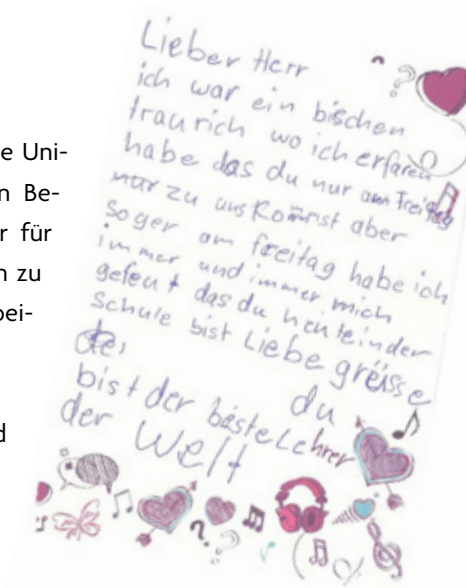 e Uni-
n Be-
r für
n zu
bei-
d
Lieber Herr
ich war ein bischen
traurich wo ich erfaren
habe das du nur am Freitag
nur zu uns kommst aber
soger am freitag habe ich
immer und immer mich
gefeut das du heute in der
Schule bist Liebe greisse
du
bist der bäste Lehrer
der Welt